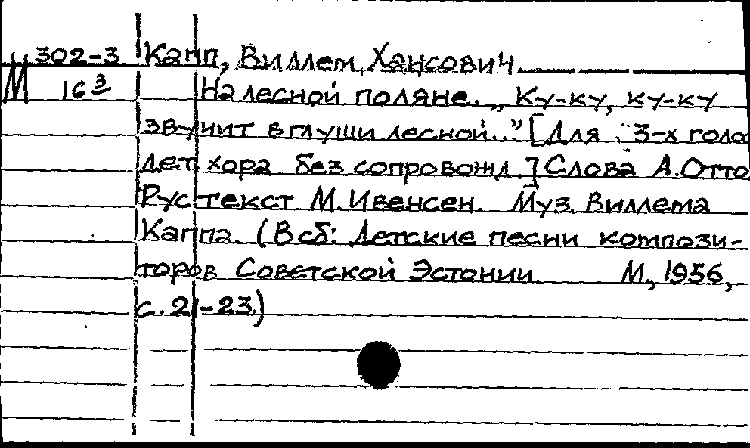 302-3 Капп, Виллем Хансович
М 16³ На лесной поляне. „Ку-ку, ку-ку
звучит в глуши лесной.." [Для 3-х голо
дет. хора без сопровожд.] Слова А. Отто
Рус. текст М. Ивенсен. Муз. Виллема
Каппа. (В сб: Детские песни компози-
торов Советской Эстонии М., 1956,
с. 21-23.)